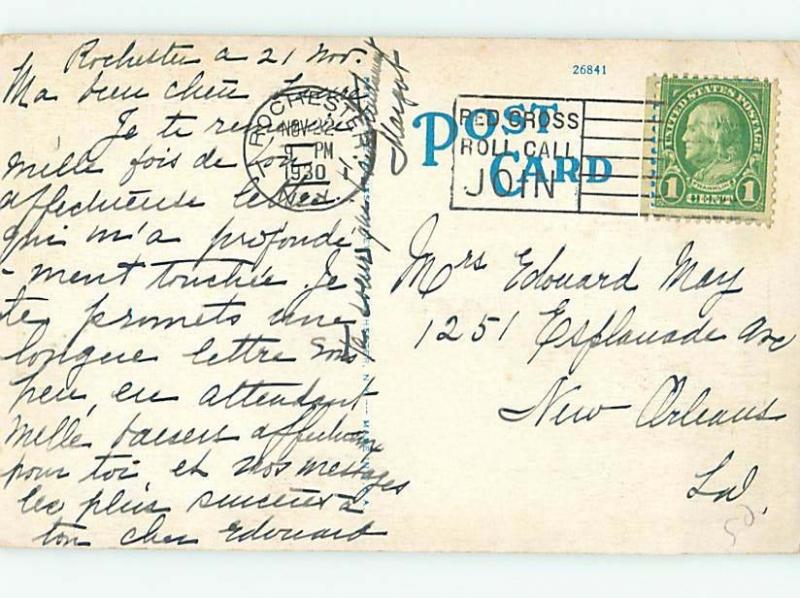 Rochester a 21 Nov.
Ma bien chère
Je te remercie
mille fois de ton
affectueuse lettre
qui m'a profondé
-ment touchée. Je
te promets une
longue lettre sous
peu, en attendant
Mille baisers affectueux
pour toi et nos messages
les plus sincères à
ton cher Edouard
Margot
26841
POST CARD
ROCHESTER
NOV 22
9 PM
1930
N.Y.
RED CROSS
ROLL CALL
JOIN
UNITED STATES POSTAGE
FRANKLIN
1 CENT 1
Mrs Edouard May
1251 Esplanade Ave
New Orleans
La.